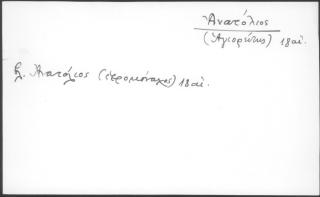 Ἀνατόλιος
(Ἁγιορείτης) 18 αἰ.
βλ. Ἀνατόλιος (ἱερομόναχος) 18 αἰ.